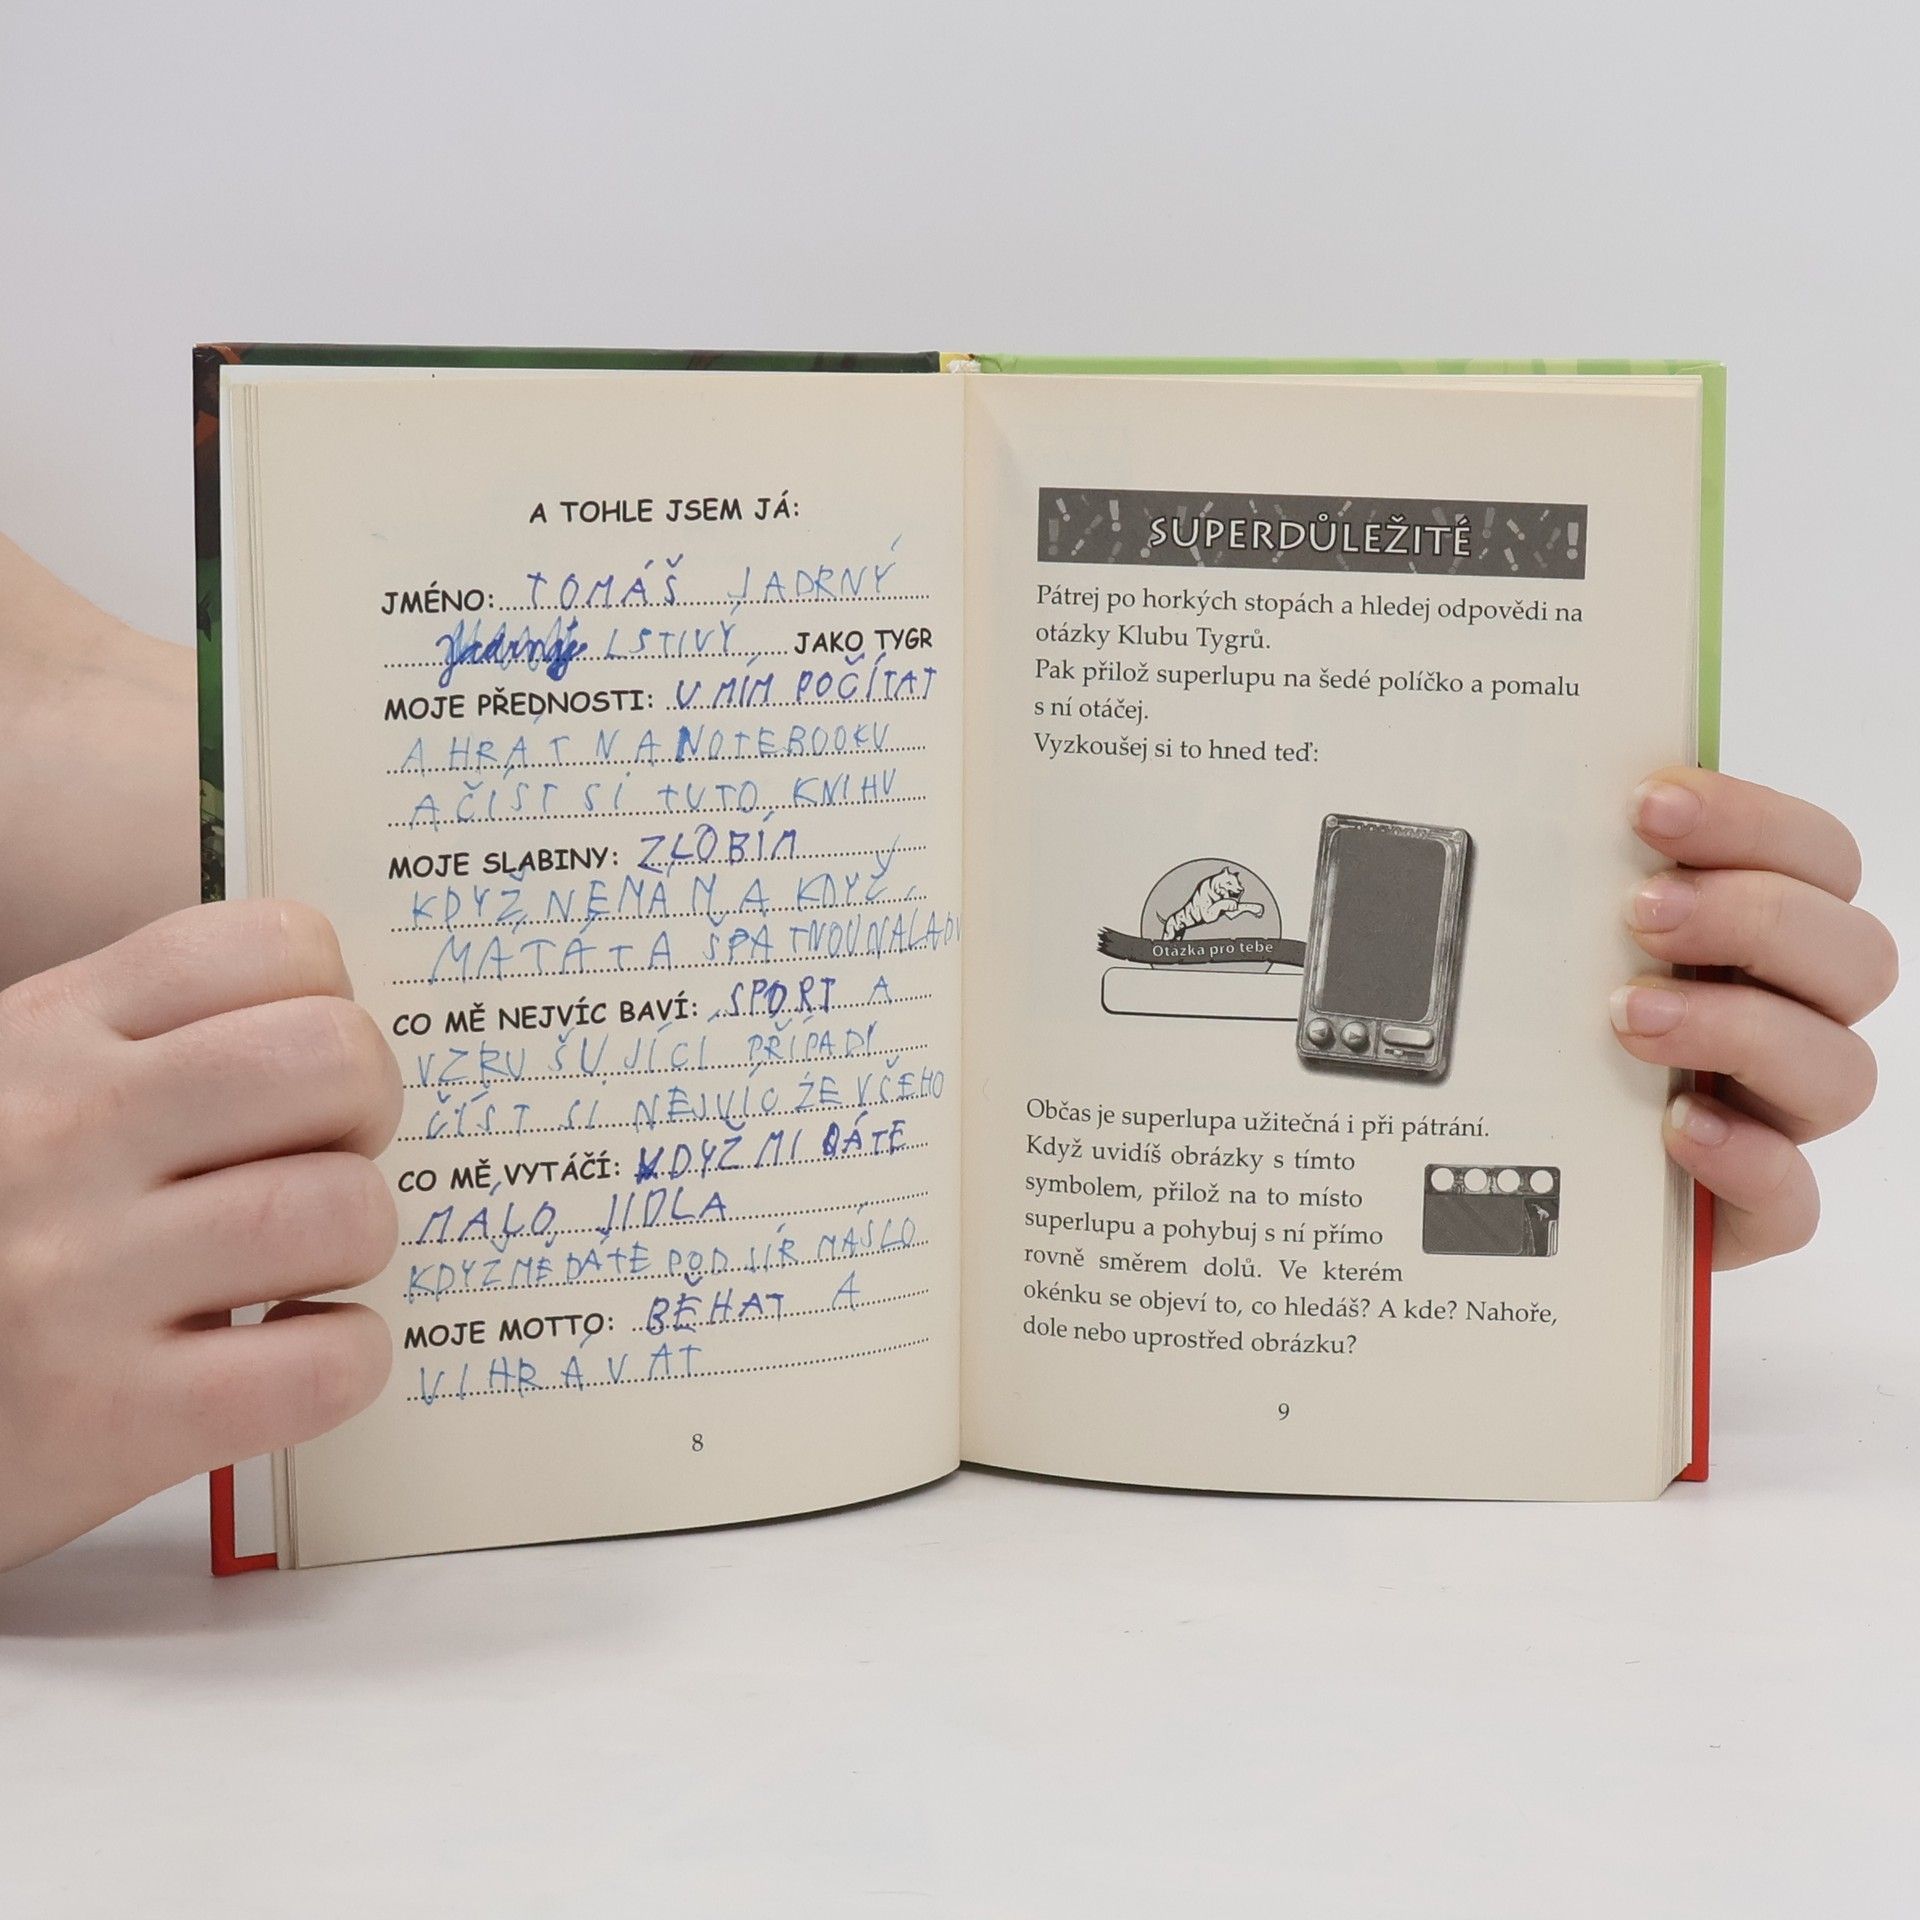 A TOHLE JSEM JÁ:
JMÉNO: TOMÁŠ JADRNÝ
LSTIVÝ JAKO TYGR
MOJE PŘEDNOSTI: UMÍM POČÍTAT
A HRÁT NA NOTEBOOKU
A ČÍST SI TUTO KNIHU
MOJE SLABINY: ZLOBÍM
KDYŽ NEMÁM A KDYŽ
MÁ TÁTA ŠPATNOU NALADU
CO MĚ NEJVÍC BAVÍ: SPORT A
VZRUŠUJÍCÍ PŘÍPADY
ČÍST SI NEJVÍC ŽE VŠEHO
CO MĚ VYTÁČÍ: KDYŽ MI DÁTE
MÁLO JIDLA
KDYŽ MĚ DÁTE POD SÍR MÁSLO
MOJE MOTTO: BĚHAT A
VIHRÁVAT
8
SUPERDŮLEŽITÉ
Pátrej po horkých stopách a hledej odpovědi na
otázky Klubu Tygrů.
Pak přilož superlupu na šedé políčko a pomalu
s ní otáčej.
Vyzkoušej si to hned teď:
Otázka pro tebe
Občas je superlupa užitečná i při pátrání.
Když uvidíš obrázky s tímto
symbolem, přilož na to místo
superlupu a pohybuj s ní přímo
rovně směrem dolů. Ve kterém
okénku se objeví to, co hledáš? A kde? Nahoře,
dole nebo uprostřed obrázku?
9